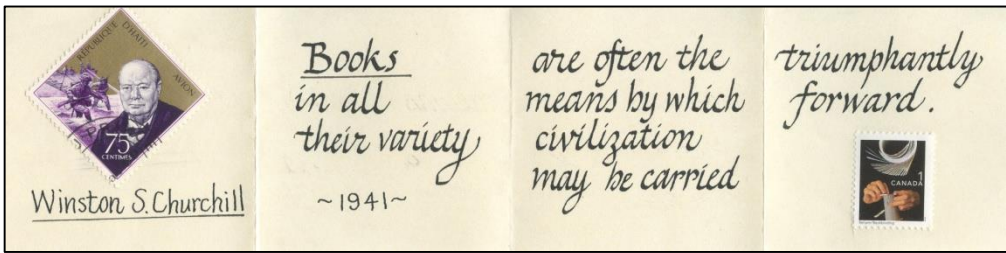 REPUBLIQUE D'HAITI
AVION
75
CENTIMES
Winston S. Churchill
Books
in all
their variety
~1941~
are often the
means by which
civilization
may be carried
triumphantly
forward.
1
CANADA